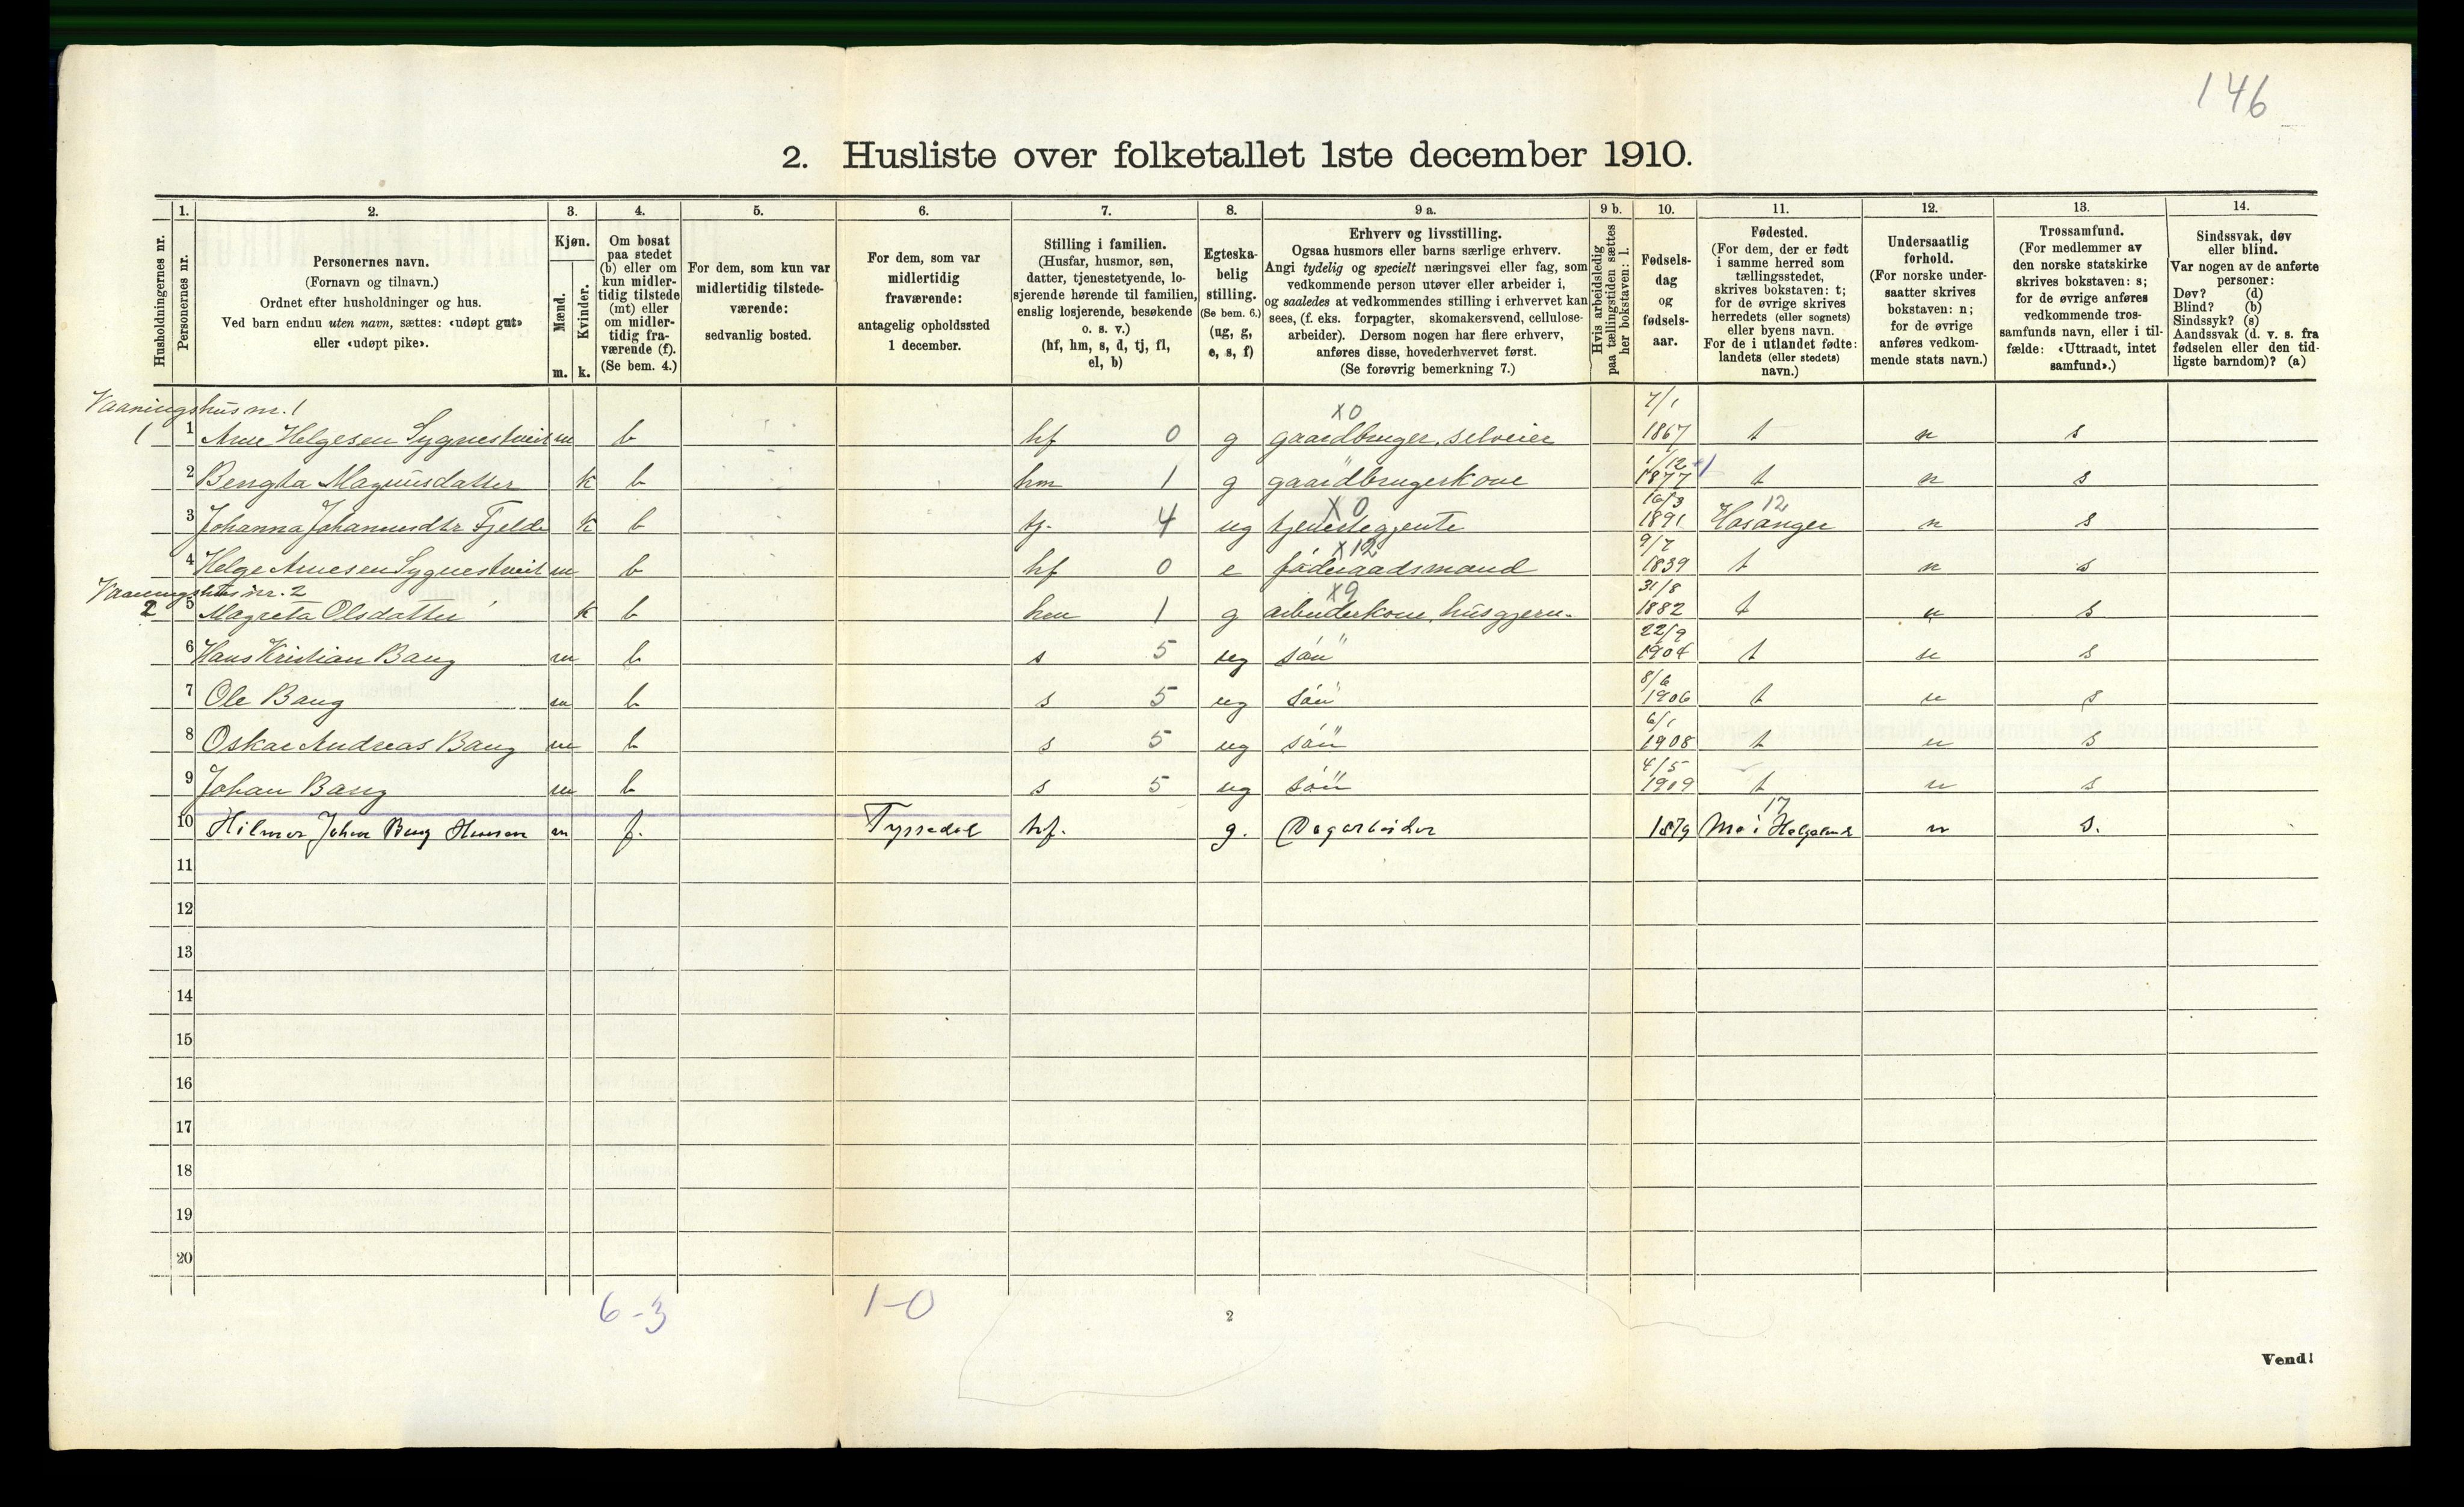 146
2. Husliste over folketallet 1ste december 1910.
Husholdningernes nr.
1.
Personernes nr.
2.
Personernes navn.
(Fornavn og tilnavn.)
Ordnet efter husholdninger og hus.
Ved barn endnu uten navn, sættes: «udøpt gut»
eller «udøpt pike».
3.
Kjøn.
Mænd.
Kvinder.
m.
k.
4.
Om bosat
paa stedet
(b) eller om
kun midler-
tidig tilstede
(mt) eller
om midler-
tidig fra-
værende (f).
(Se bem. 4.)
5.
For dem, som kun var
midlertidig tilstede-
værende:
sedvanlig bosted.
6.
For dem, som var
midlertidig
fraværende:
antagelig opholdssted
1 december.
7.
Stilling i familien.
(Husfar, husmor, søn,
datter, tjenestetyende, lo-
sjerende hørende til familien,
enslig losjerende, besøkende
o. s. v.)
(hf, hm, s, d, tj, fl,
el, b)
8.
Egteska-
belig
stilling.
(Se bem. 6.)
(ug, g,
e, s, f)
9 a.
Erhverv og livsstilling.
Ogsaa husmors eller barns særlige erhverv.
Angi tydelig og specielt næringsvei eller fag, som
vedkommende person utøver eller arbeider i,
og saaledes at vedkommendes stilling i erhvervet kan
sees, (f. eks. forpagter, skomakersvend, cellulose-
arbeider). Dersom nogen har flere erhverv,
anføres disse, hovederhvervet først.
(Se forøvrig bemerkning 7.)
9 b.
Hvis arbeidsledig
paa tællingstiden sættes
her bokstaven: l.
10.
Fødsels-
dag
og
fødsels-
aar.
11.
Fødested.
(For dem, der er født
i samme herred som
tællingsstedet,
skrives bokstaven: t;
for de øvrige skrives
herredets (eller sognets)
eller byens navn.
For de i utlandet fødte:
landets (eller stedets)
navn.)
12.
Undersaatlig
forhold.
(For norske under-
saatter skrives
bokstaven: n;
for de øvrige
anføres vedkom-
mende stats navn.)
13.
Trossamfund.
(For medlemmer av
den norske statskirke
skrives bokstaven: s;
for de øvrige anføres
vedkommende tros-
samfunds navn, eller i til-
fælde: «Uttraadt, intet
samfund».)
14.
Sindssvak, døv
eller blind.
Var nogen av de anførte
personer:
Døv? (d)
Blind? (b)
Sindssyk? (s)
Aandssvak (d. v. s. fra
fødselen eller den tid-
ligste barndom)? (a)
Vaaningshus nr. 1
1 1 Arne Helgesen Sygnestveit m b hf 0 g x0 gaardbruger, selveier 7/1 1867 t n s
2 Bengta Magnusdatter k b hm 1 g gaardbrugerkone 1/12 1877 t n s
3 Johanna Johannesdtr Fjelde k b tj. 4 ug x0 tjenestegjente 16/3 1891 12 Hosanger n s
4 Helge Arnesen Sygnestveit m b hf 0 e x12 føderaadsmand 9/7 1839 t n s
Vaaningshus nr. 2
2 5 Magreta Olsdatter k b hm 1 g x9 arbeiderkone, husgjern. 31/8 1882 t n s
6 Hans Kristian Bang m b s 5 ug søn 22/9 1904 t n s
7 Ole Bang m b s 5 ug søn 8/6 1906 t n s
8 Oskar Andreas Bang m b s 5 ug søn 6/1 1908 t n s
9 Johan Bang m b s 5 ug søn 4/5 1909 t n s
10 Hilmer Johan Bang Hansen m f. Tyssedal hf. g. Dagarbeider 1879 17 Mo i Helgeland n s.
11
12
13
14
15
16
17
18
19
20
6-3 1-0
2
Vend!